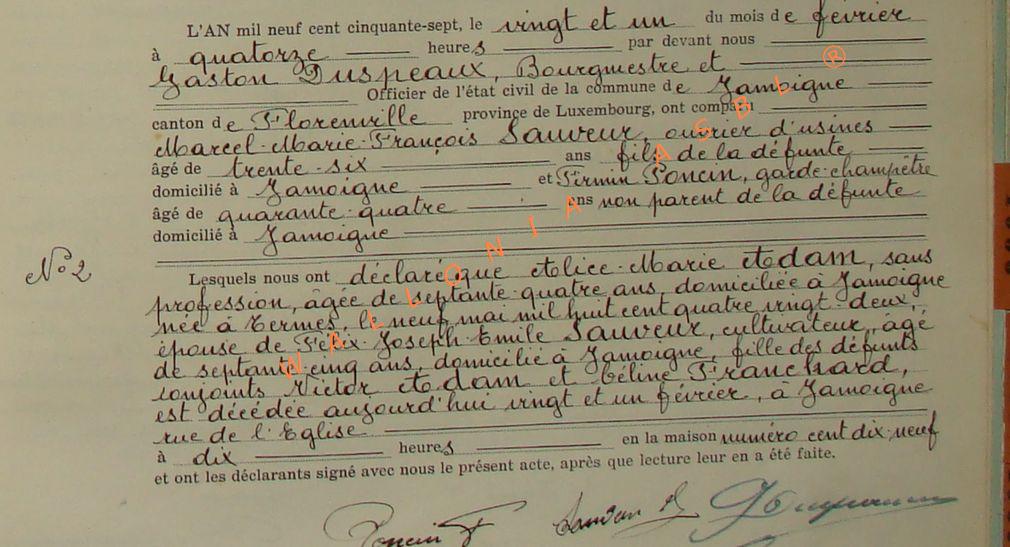 L'AN mil neuf cent cinquante-sept, le vingt et un du mois de février
à quatorze heures par devant nous
Gaston Duspeaux, Bourgmestre et
Officier de l'état civil de la commune de Jamoigne
canton de Florenville province de Luxembourg, ont comparu
Marcel-Marie-François Sauveur, ouvrier d'usines
âgé de trente-six ans fils de la défunte
domicilié à Jamoigne et Firmin Poncin, garde-champêtre
âgé de quarante-quatre ans non parent de la défunte
domicilié à Jamoigne
N° 2
Lesquels nous ont déclaré que Alice-Marie Adam, sans
profession, âgée de septante-quatre ans, domiciliée à Jamoigne
née à Termes, le neuf mai mil huit cent quatre vingt-deux,
épouse de Félix-Joseph-Emile Sauveur, cultivateur, âgé
de septante-cinq ans, domicilié à Jamoigne, fille des défunts
conjoints, Victor Adam et Céline Franchard,
est décédée aujourd'hui vingt et un février, à Jamoigne
rue de l'Eglise
à dix heures en la maison numéro cent dix-neuf
et ont les déclarants signé avec nous le présent acte, après que lecture leur en a été faite.
Poncin F Sauveur
WALLONIA ASBL ®